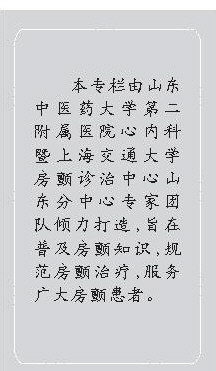 本专栏由山东
中医药大学第二
附属医院心内科
暨上海交通大学
房颤诊治中心山
东分中心专家团
队倾力打造，旨在
普及房颤知识，规
范房颤治疗，服务
广大房颤患者。